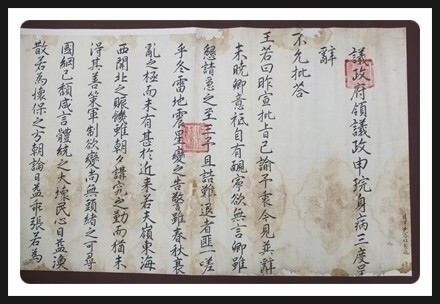 議政府領議政申琓身病三度呈
辭
不允批答
王若曰昨宣批旨已諭予衷今見葉辭
未曉卿意祗自有靦寧欲無言卿雖
懇請忽之至王予且詰難退者匪一嗟
乎冬雷地震星變之告警雖春秋衰
亂之極而未有甚於近来若夫嶺東海
西關北之賑饑雖朝夕講究之勤而猶未
得其善策軍制欲變尚無頭緒之可尋
國綱已頹咸言體統之大壞民心日益渙
散若為懷保之方朝論日益乖張若為